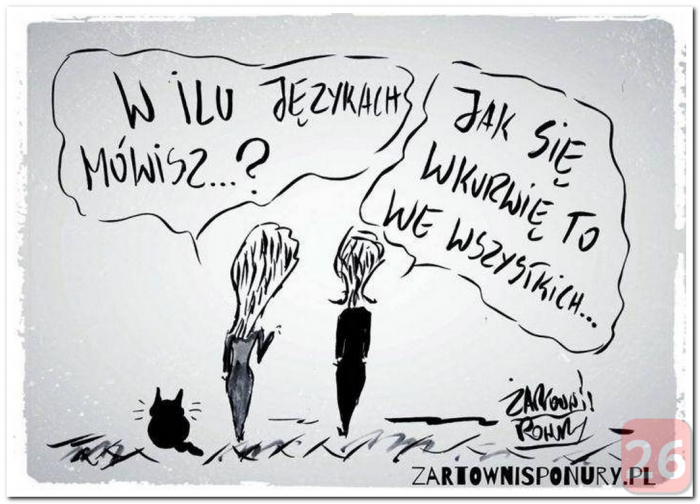 W ILU JĘZYKACH
MÓWISZ...?
JAK SIĘ
WKURWIĘ TO
WE WSZYSTKICH...
ŻARTOWNIŚ
PONURY
ZARTOWNISPONURY.PL
26